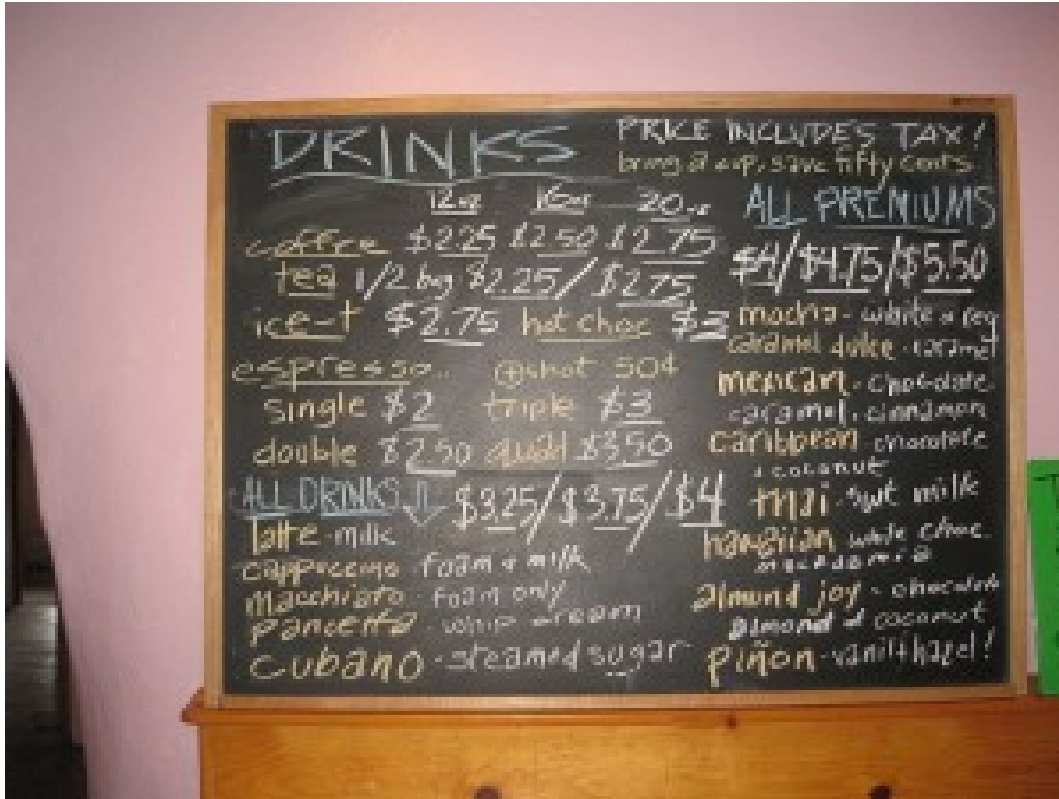 DRINKS
12oz 16oz 20oz
coffee $2.25 $2.50 $2.75
tea 1/2 bag $2.25/$2.75
ice-t $2.75 hot choc $3
espresso.. @shot 50¢
single $2 triple $3
double $2.50 quad $3.50
ALL DRINKS $3.25/$3.75/$4
latte-milk
cappuccino foam & milk
macchiato foam only
whip cream
cubano-steamed sugar
PRICE INCLUDES TAX!
bring a cup, save fifty cents
ALL PREMIUMS
$4/$4.75/$5.50
mocha-white or reg
caramel dulce-caramel
mexican-chocolate
caramel, cinnamon
caribbean chocolate
& coconut
thai-swt milk
hawaiian white choc
macadamia
almond joy-chocolate
almond & coconut
piñon-vanil+hazel!